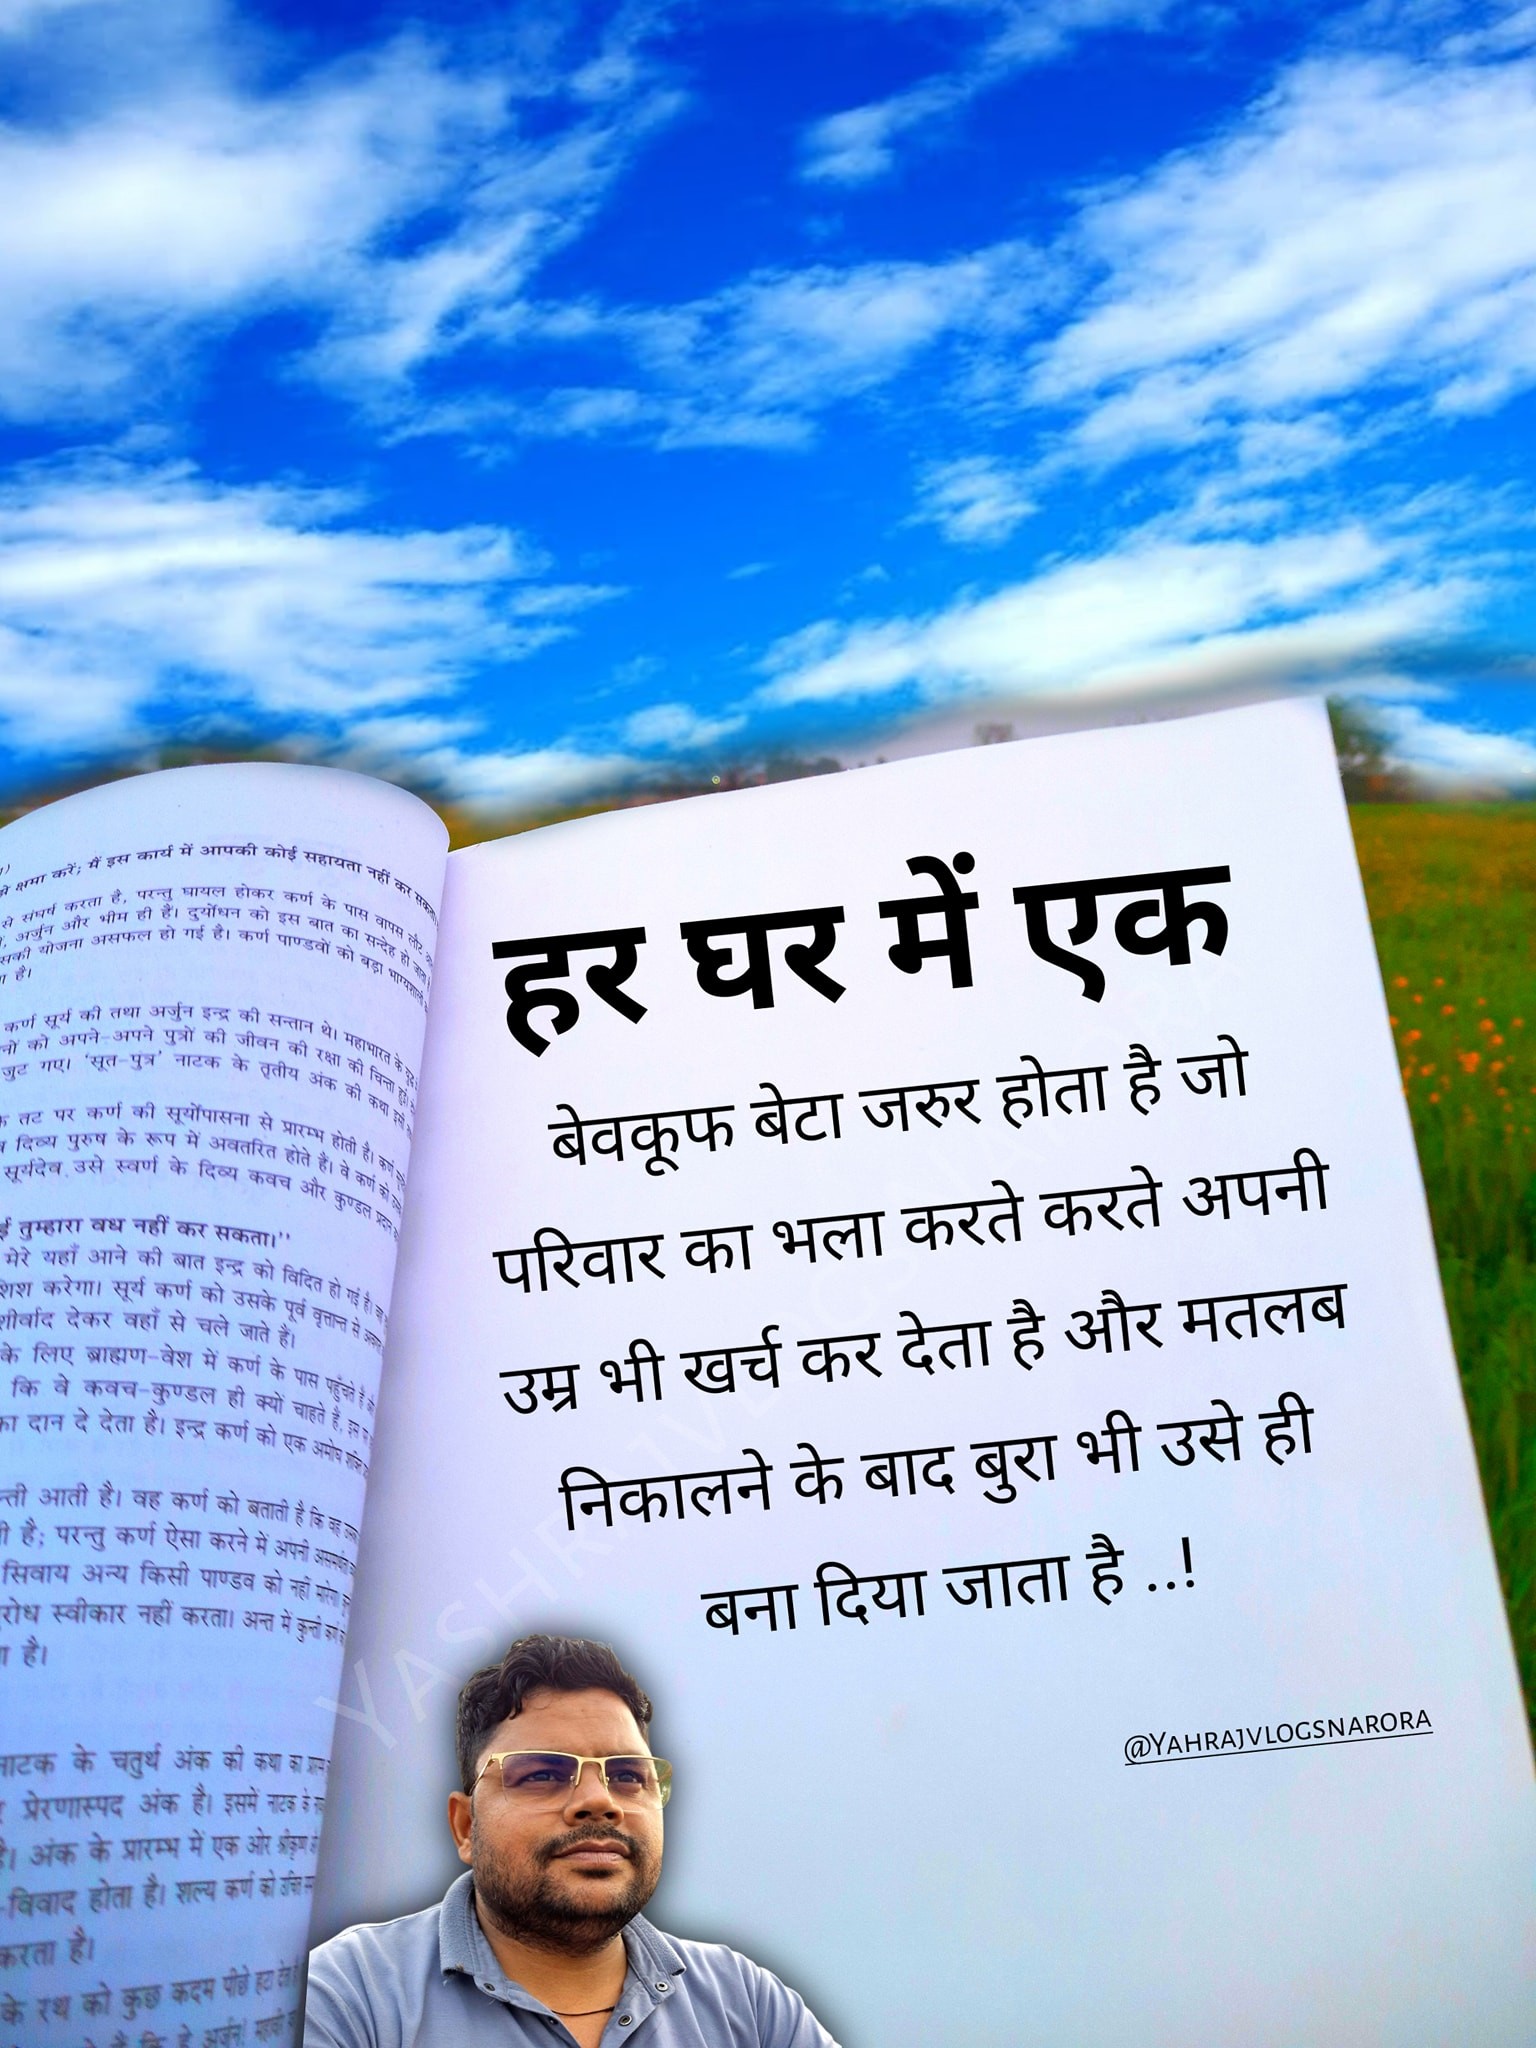 क्षमा करें; मैं इस कार्य में आपकी कोई सहायता नहीं कर सकता।
से संघर्ष करता है, परन्तु घायल होकर कर्ण के पास वापस लौट
अर्जुन और भीम ही हैं। दुर्योधन को इस बात का सन्देह हो जाता
योजना असफल हो गई है। कर्ण पाण्डवों को बड़ा भाग्यशाली
है।
कर्ण सूर्य की तथा अर्जुन इन्द्र की सन्तान थे। महाभारत के
को अपने-अपने पुत्रों की जीवन की रक्षा की चिन्ता हुई।
जुट गए। 'सूत-पुत्र' नाटक के तृतीय अंक की कथा इसी
तट पर कर्ण की सूर्योपासना से प्रारम्भ होती है। कर्ण
दिव्य पुरुष के रूप में अवतरित होते हैं। वे कर्ण को
सूर्यदेव उसे स्वर्ण के दिव्य कवच और कुण्डल
तुम्हारा वध नहीं कर सकता।''
मेरे यहाँ आने की बात इन्द्र को विदित हो गई है।
करेगा। सूर्य कर्ण को उसके पूर्व वृत्तान्त से
देकर वहाँ से चले जाते हैं।
के लिए ब्राह्मण-वेश में कर्ण के पास पहुँचते हैं
कि वे कवच-कुण्डल ही क्यों चाहते हैं, इस
दान दे देता है। इन्द्र कर्ण को एक अमोघ शक्ति
आती है। वह कर्ण को बताती है कि वह
है; परन्तु कर्ण ऐसा करने में अपनी असमर्थता
सिवाय अन्य किसी पाण्डव को नहीं मारेगा
स्वीकार नहीं करता। अन्त में कुन्ती कर्ण
है।
नाटक के चतुर्थ अंक की कथा का
प्रेरणास्पद अंक है। इसमें नाटक के
है। अंक के प्रारम्भ में एक ओर श्रीकृष्ण
-विवाद होता है। शल्य कर्ण को उचित
करता है।
के रथ को कुछ कदम पीछे हटा देता
कि हे अर्जुन!
हर घर में एक
बेवकूफ बेटा जरुर होता है जो
परिवार का भला करते करते अपनी
उम्र भी खर्च कर देता है और मतलब
निकालने के बाद बुरा भी उसे ही
बना दिया जाता है ..!
@YAHRAJVLOGSNARORA